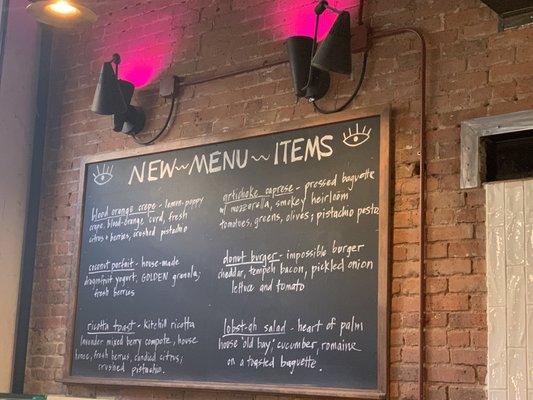 NEW~MENU~ITEMS
blood orange crepe - lemon-poppy
crepe, blood-orange curd, fresh
citrus + berries, crushed pistachio
coconut parfait - house-made
dragonfruit yogurt, GOLDEN granola,
fresh berries
ricotta toast - Kitehill ricotta
lavender mixed berry compote, house
honee, fresh berries, candied citrus,
crushed pistachio.
artichoke caprese - pressed baguette
w/ mozzarella, smokey heirloom
tomatoes, greens, olives, pistachio pesto
donut burger - impossible borger
cheddar, tempeh bacon, pickled onion
lettuce and tomato
lobst-ah salad - heart of palm
house "old bay", cucumber, romaine
on a toasted baguette.